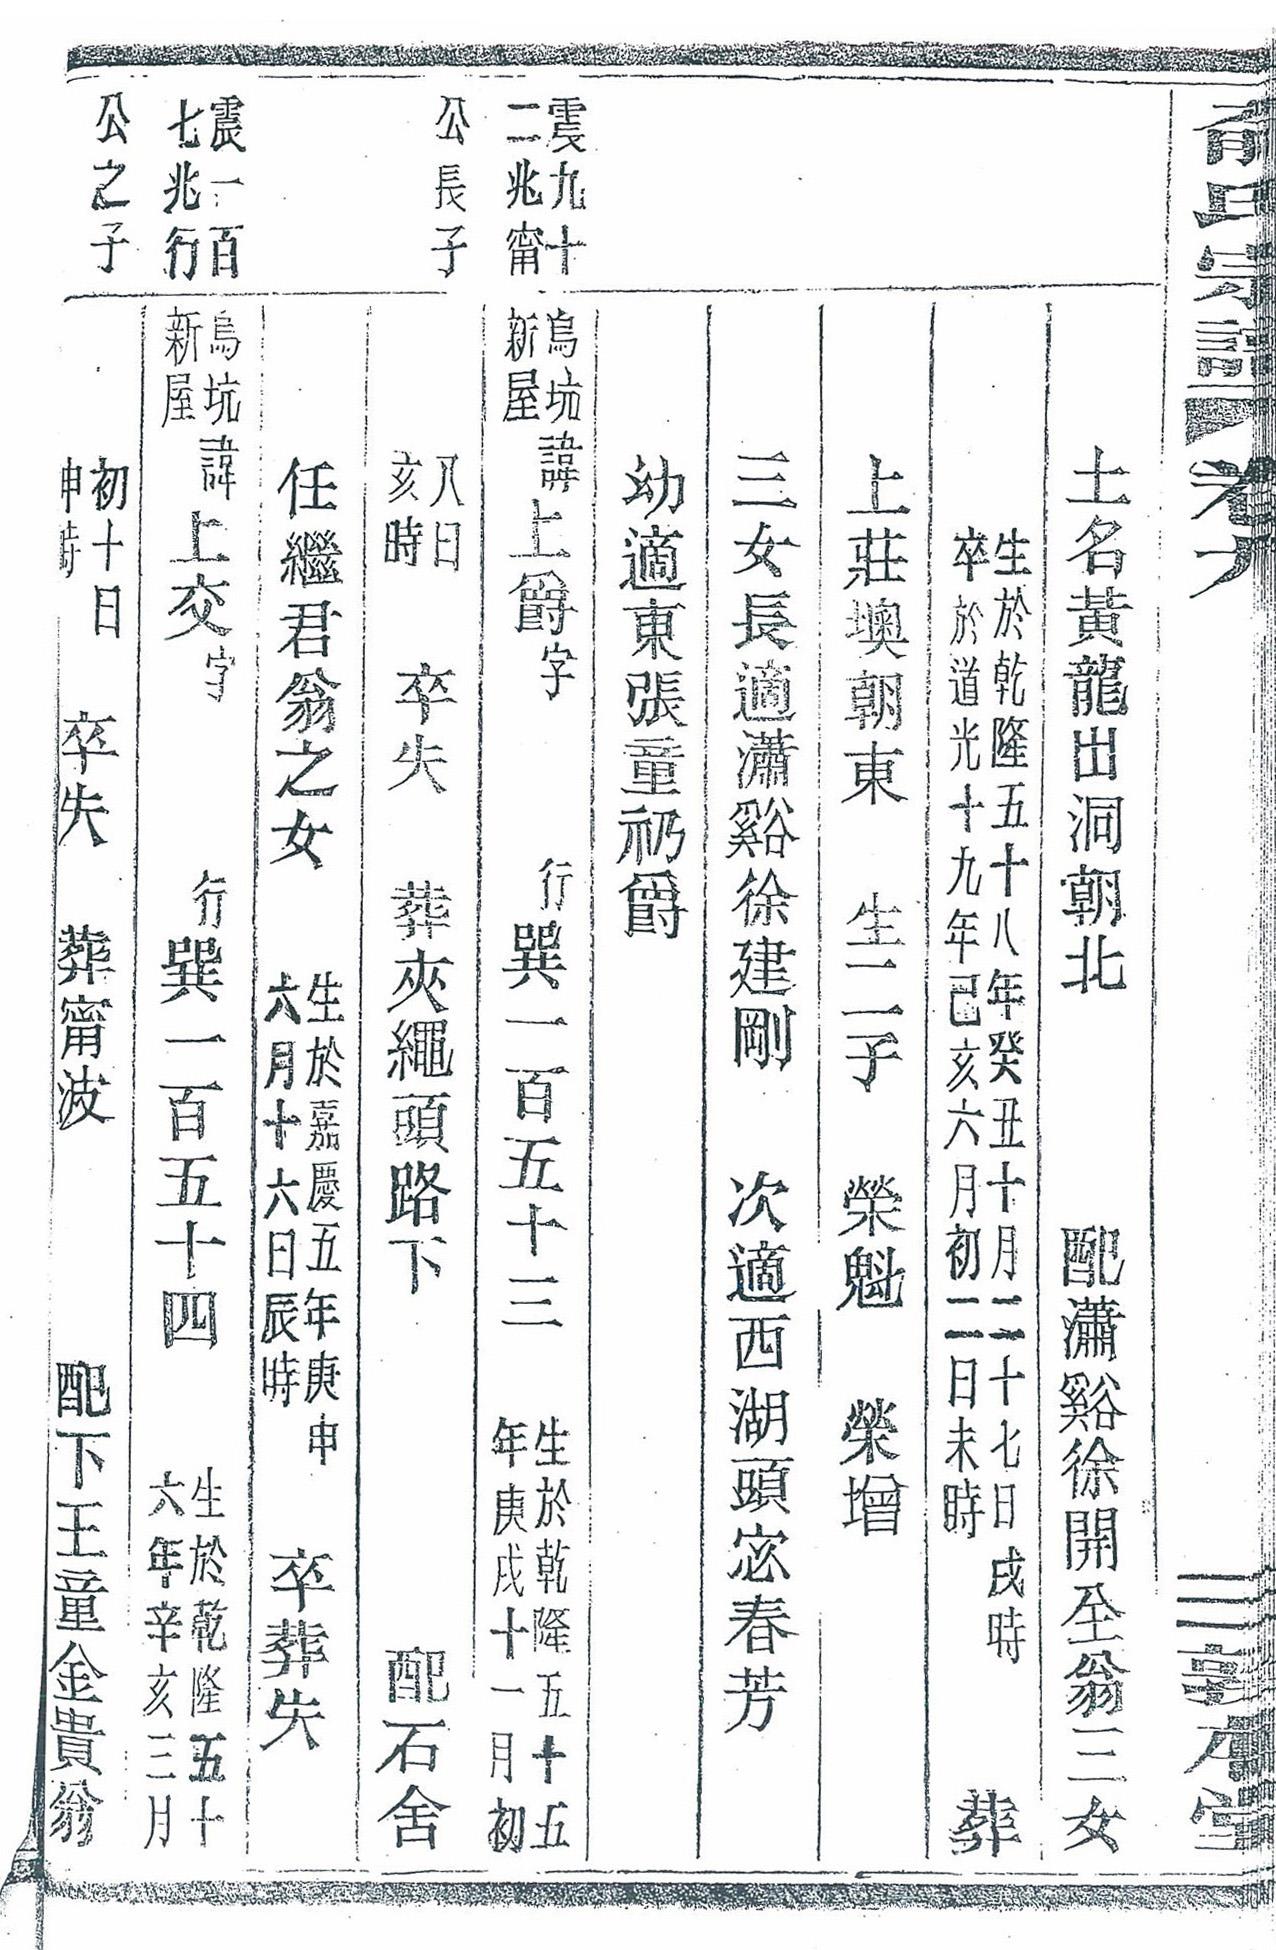 俞氏宗譜
卷六
三 敦本堂
土名黃龍出洞朝北 配瀟谿徐開坙翁三女
生於乾隆五十八年癸丑十月二十七日戌時
卒於道光十九年己亥六月初二日未時
葬
上莊墺朝東 生二子 榮魁 榮增
三女長適瀟谿徐建剛 次適西湖頭宓春芳
幼適東張童礽爵
震九十
二兆甯
公長子
烏坑
新屋
諱上爵字 行巽一百五十三
生於乾隆五十五
年庚戌十一月初
八日
亥時
卒失 葬夾繩頭路下 配石舍
任繼君翁之女
生於嘉慶五年庚申
六月十六日辰時
卒葬失
震一百
七兆行
公之子
烏坑
新屋
諱上交字 行巽一百五十四
生於乾隆五十
六年辛亥三月
初十日
申時
卒失 葬甯波 配下王童金貴翁